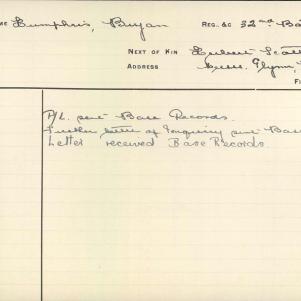 ME Humphris, Bryan REG. &c 32nd Ba
NEXT OF KIN Hubert Scott
ADDRESS Glynn,
F
P/L. sent Base Records.
Further letter of Enquiry sent Base
Letter received Base Records.